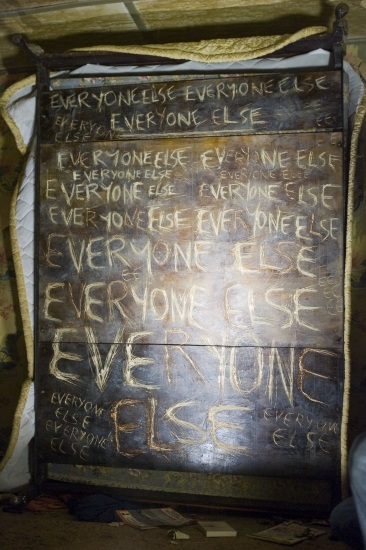 EVERYONE ELSE EVERYONE ELSE
EVERYONE ELSE
EVERYONE ELSE
EVERYONE ELSE EVERYONE ELSE
EVERYONE ELSE EVERYONE ELSE
EVERYONE ELSE EVERYONE ELSE
EVERYONE ELSE EVERYONE ELSE
EVERYONE ELSE
EVERYONE ELSE
EVERYONE
ELSE
EVERYONE
ELSE
EVERYONE
ELSE
EVERYON
ELSE